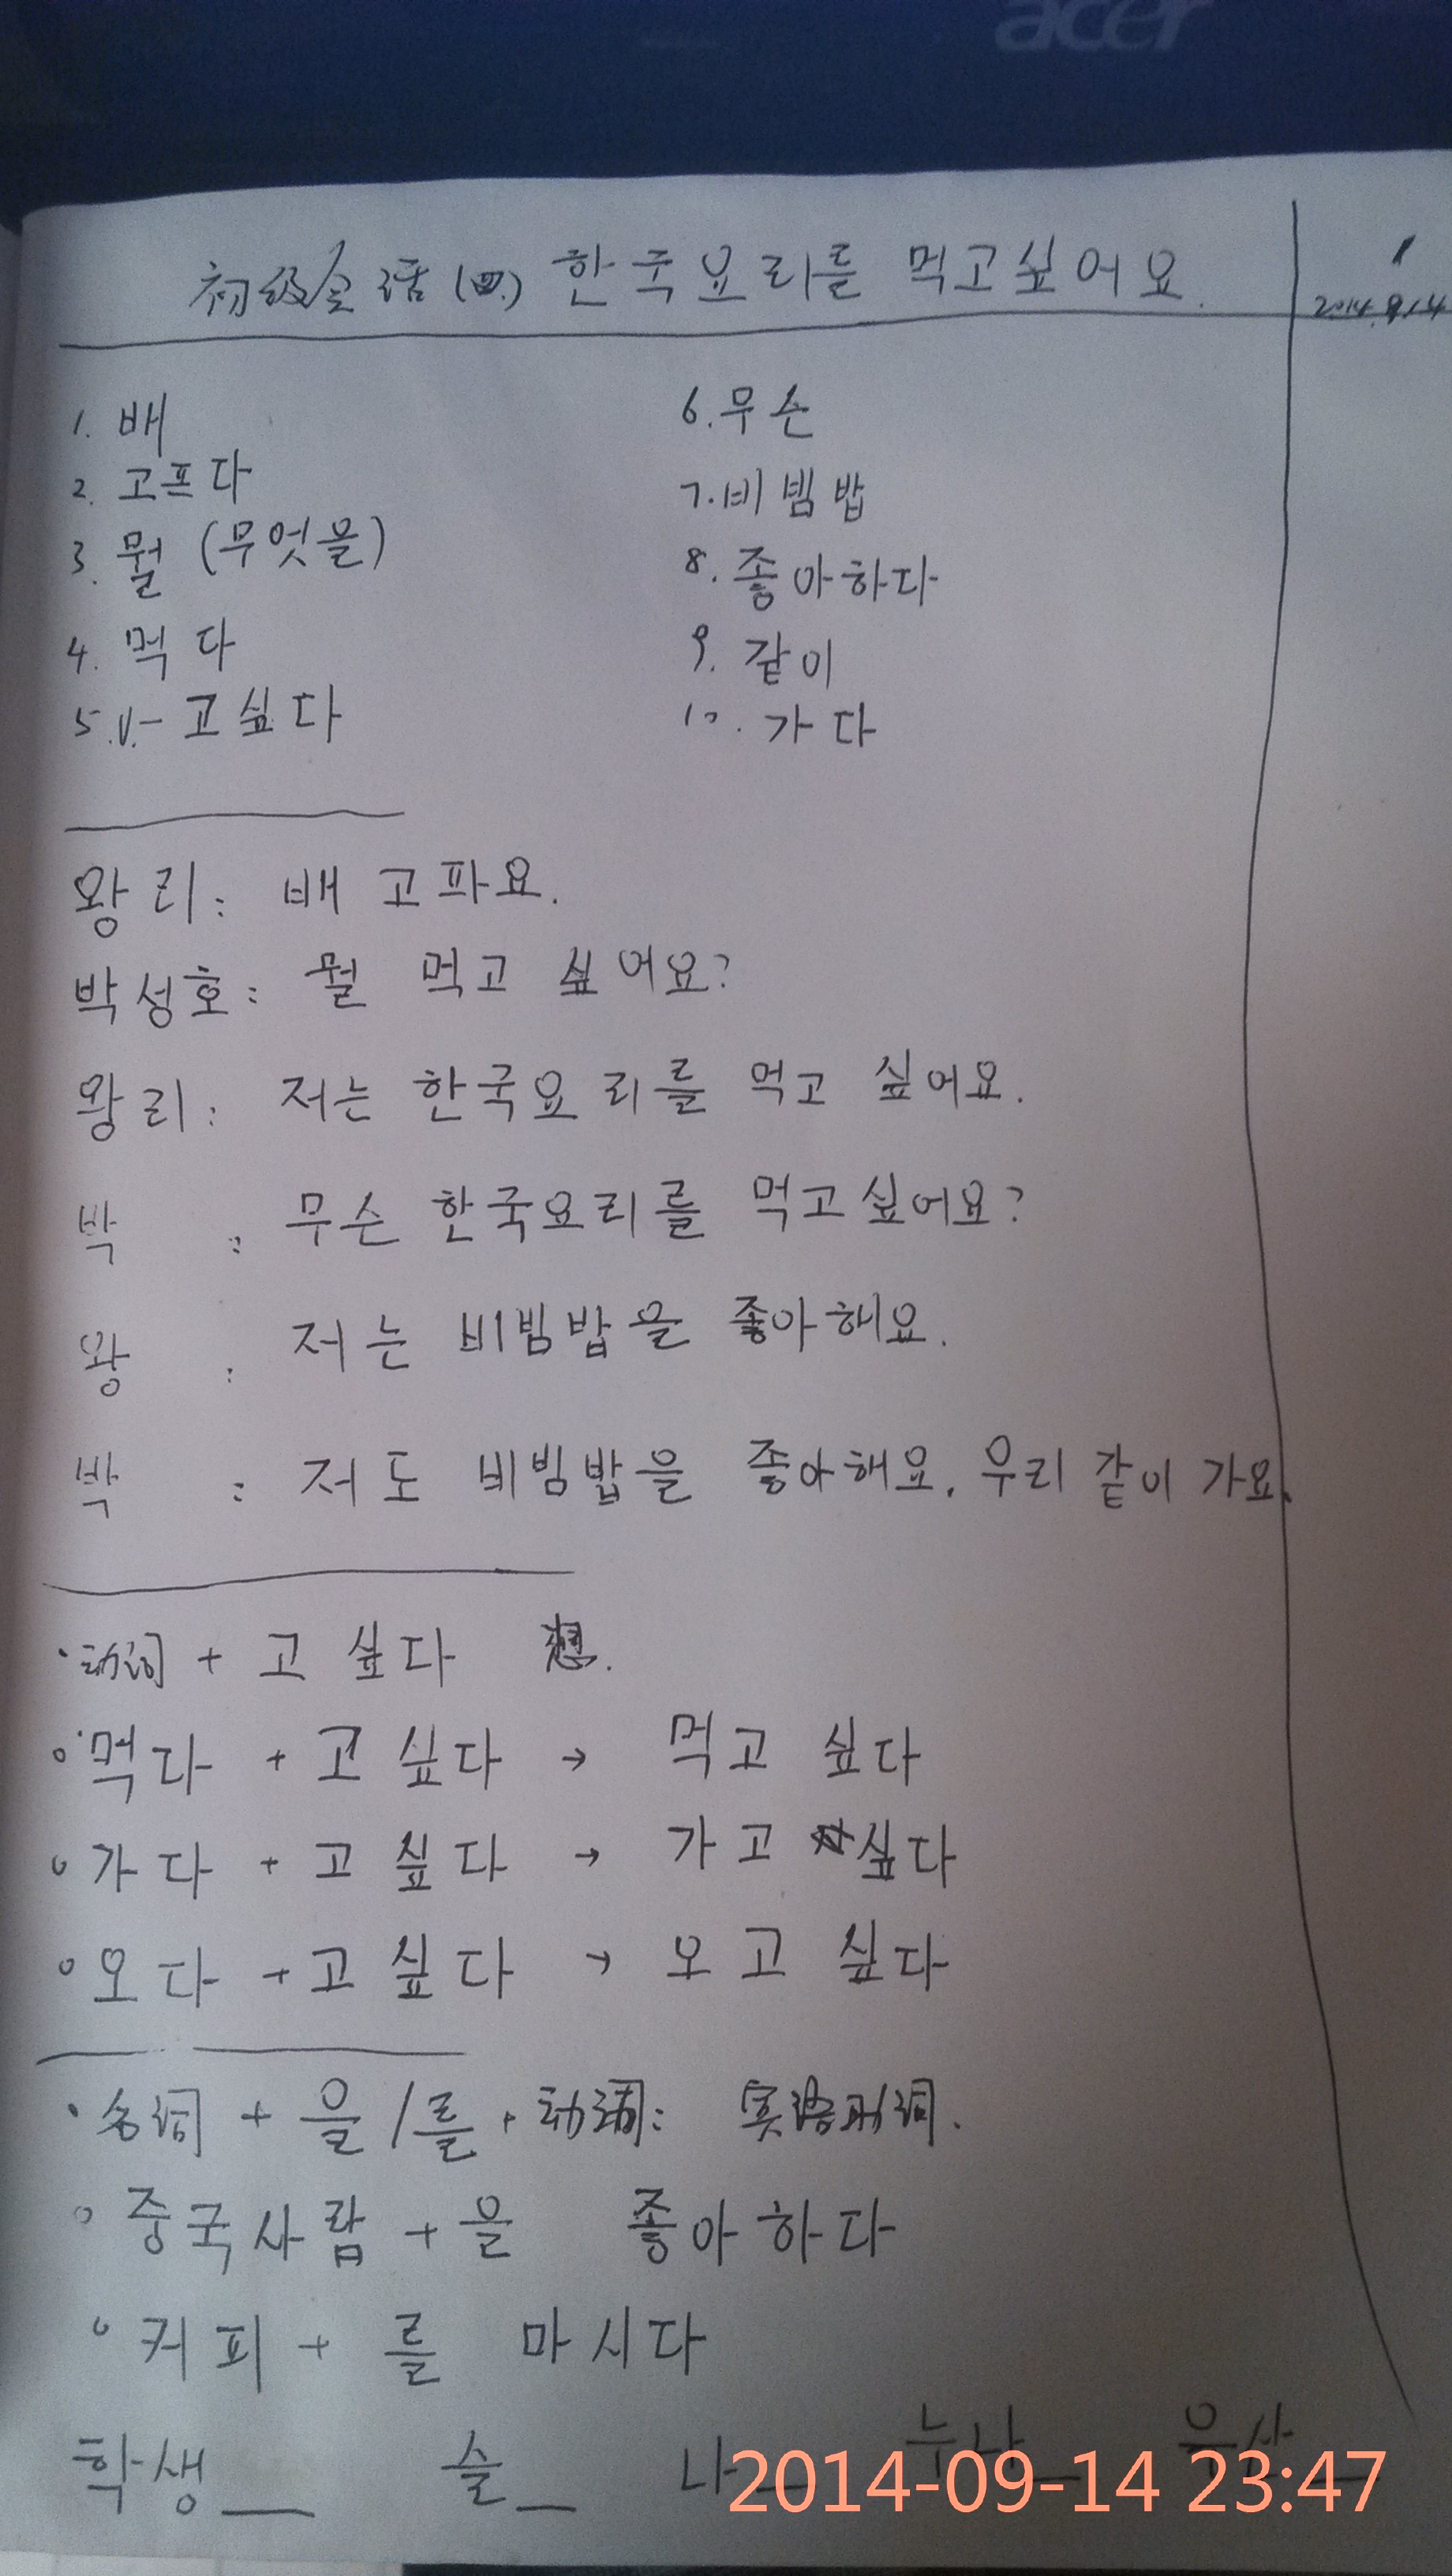 acer
初级会话(四) 한국요리를 먹고싶어요.
1
2014.9.14
1. 배
2. 고프다
3. 뭘 (무엇을)
4. 먹다
5. v.- 고싶다
6. 무슨
7. 비빔밥
8. 좋아하다
9. 같이
10. 가다
왕리: 배 고파요.
박성호: 뭘 먹고 싶어요?
왕리: 저는 한국요리를 먹고 싶어요.
박 : 무슨 한국요리를 먹고싶어요?
왕 : 저는 비빔밥을 좋아해요.
박 : 저도 비빔밥을 좋아해요. 우리 같이 가요.
·动词 + 고 싶다 想.
◦먹다 + 고 싶다 → 먹고 싶다
◦가다 + 고 싶다 → 가고 싶다
◦오다 + 고 싶다 → 오고 싶다
·名词 + 을/를 + 动词: 宾格助词.
◦중국사람 + 을 좋아하다
◦커피 + 를 마시다
학생__ 술__ 나__ 누나__ 우산__
2014-09-14 23:47